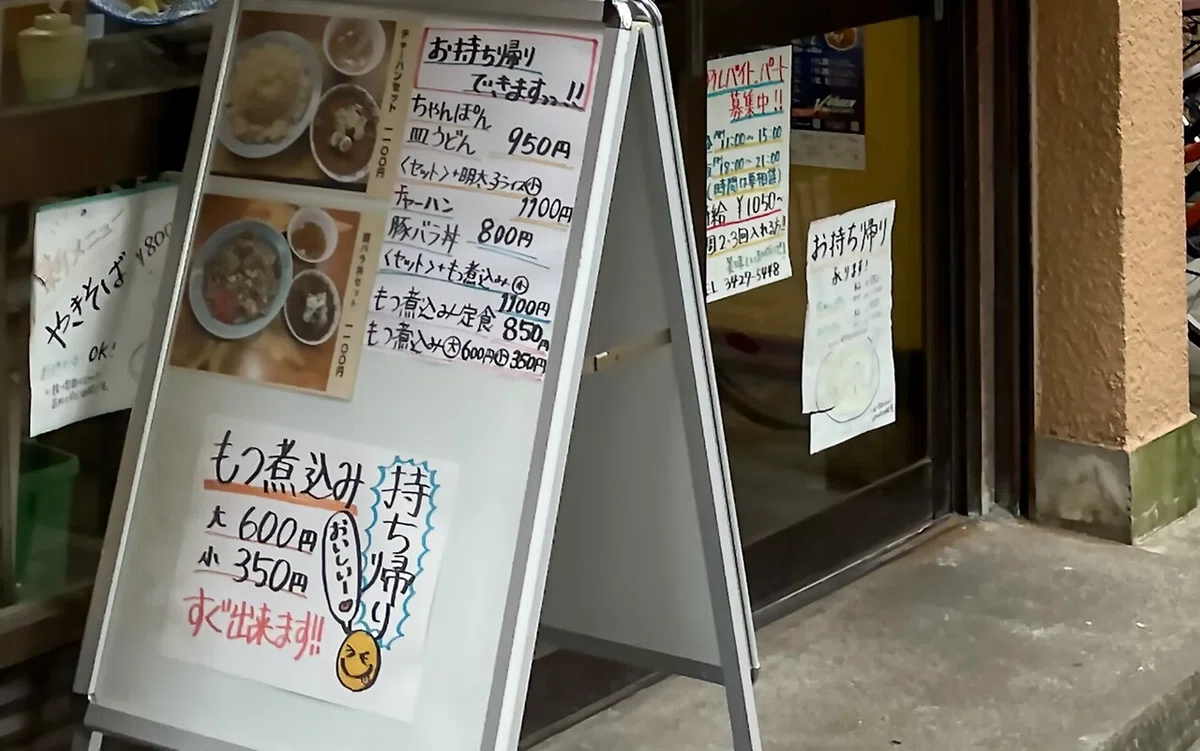 チャーハンセット 一一〇〇円
豚バラ丼セット 一一〇〇円
お持ち帰り
できますっっ!!
ちゃんぽん
皿うどん 950円
〈セット〉+明太子ライス小
1100円
チャーハン
豚バラ丼 800円
〈セット〉+もつ煮込み小
1100円
もつ煮込み定食 850円
もつ煮込み大600円小350円
もつ煮込み
大 600円
小 350円
すぐ出来ます!!
おいしいー
持ち帰り
メニュー
やきそば ¥800
OK!
アルバイト、パート
募集中!!
11:00〜15:00
18:00〜21:00
(時間は要相談)
時給 ¥1050〜
週2〜3回入れる方!
TEL 3429-5448
お持ち帰り
あります!